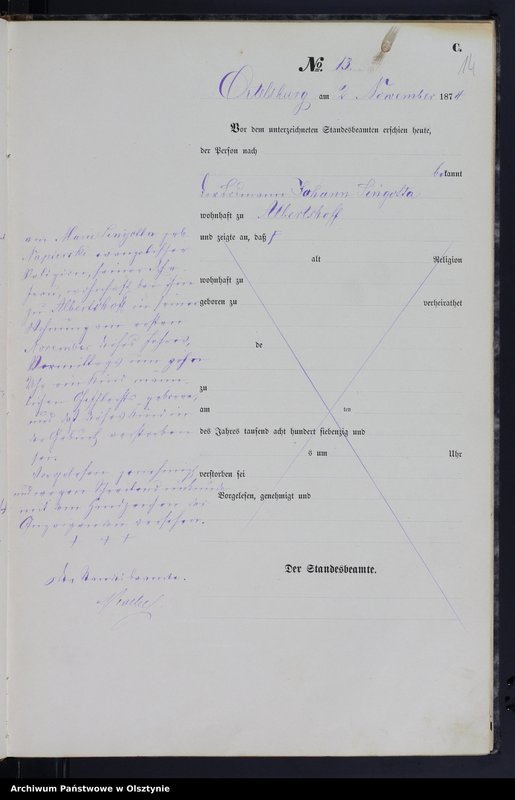 C.
14
No. 13.
Ortelsburg am 2 November 1874
Vor dem unterzeichneten Standesbeamten erschien heute,
der Person nach
bekannt
Johann Singolla
wohnhaft zu Albertshoff
und zeigte an, daß
alt Religion
wohnhaft zu
geboren zu verheirathet
de
zu
am ten
des Jahres tausend acht hundert siebenzig und
s um Uhr
verstorben sei
Vorgelesen, genehmigt und
Der Standesbeamte.
Marie Singolla geb
evangelischer
Religion, seiner Ehe-
frau, wohnhaft bei ihm
zu Albertshoff in seiner
Wohnung am ersten
November dieses Jahres,
Vormittags um zehn
Uhr ein Kind männ-
lichen Geschlechts geboren,
und das Kind in
der Geburt verstorben
sei.
Vorgelesen genehmigt
und wegen
mit dem Handzeichen des
versehen.
+ + +
Der Standesbeamte.
Archiwum Państwowe w Olsztynie